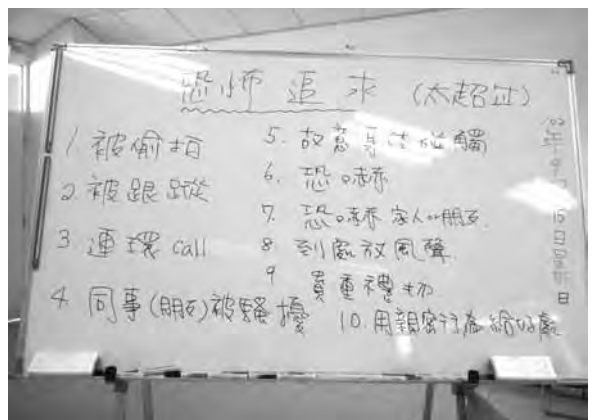 恐怖追求 (太超过)
1 被偷拍
2. 被跟蹤
3 連環 call
4. 同事(朋友)被騷擾
5. 故意身体碰觸
6. 恐嚇
7. 恐嚇家人or朋友.
8 到處放風聲.
9 貴重禮物
10. 用親密行為給好處
15日星期日